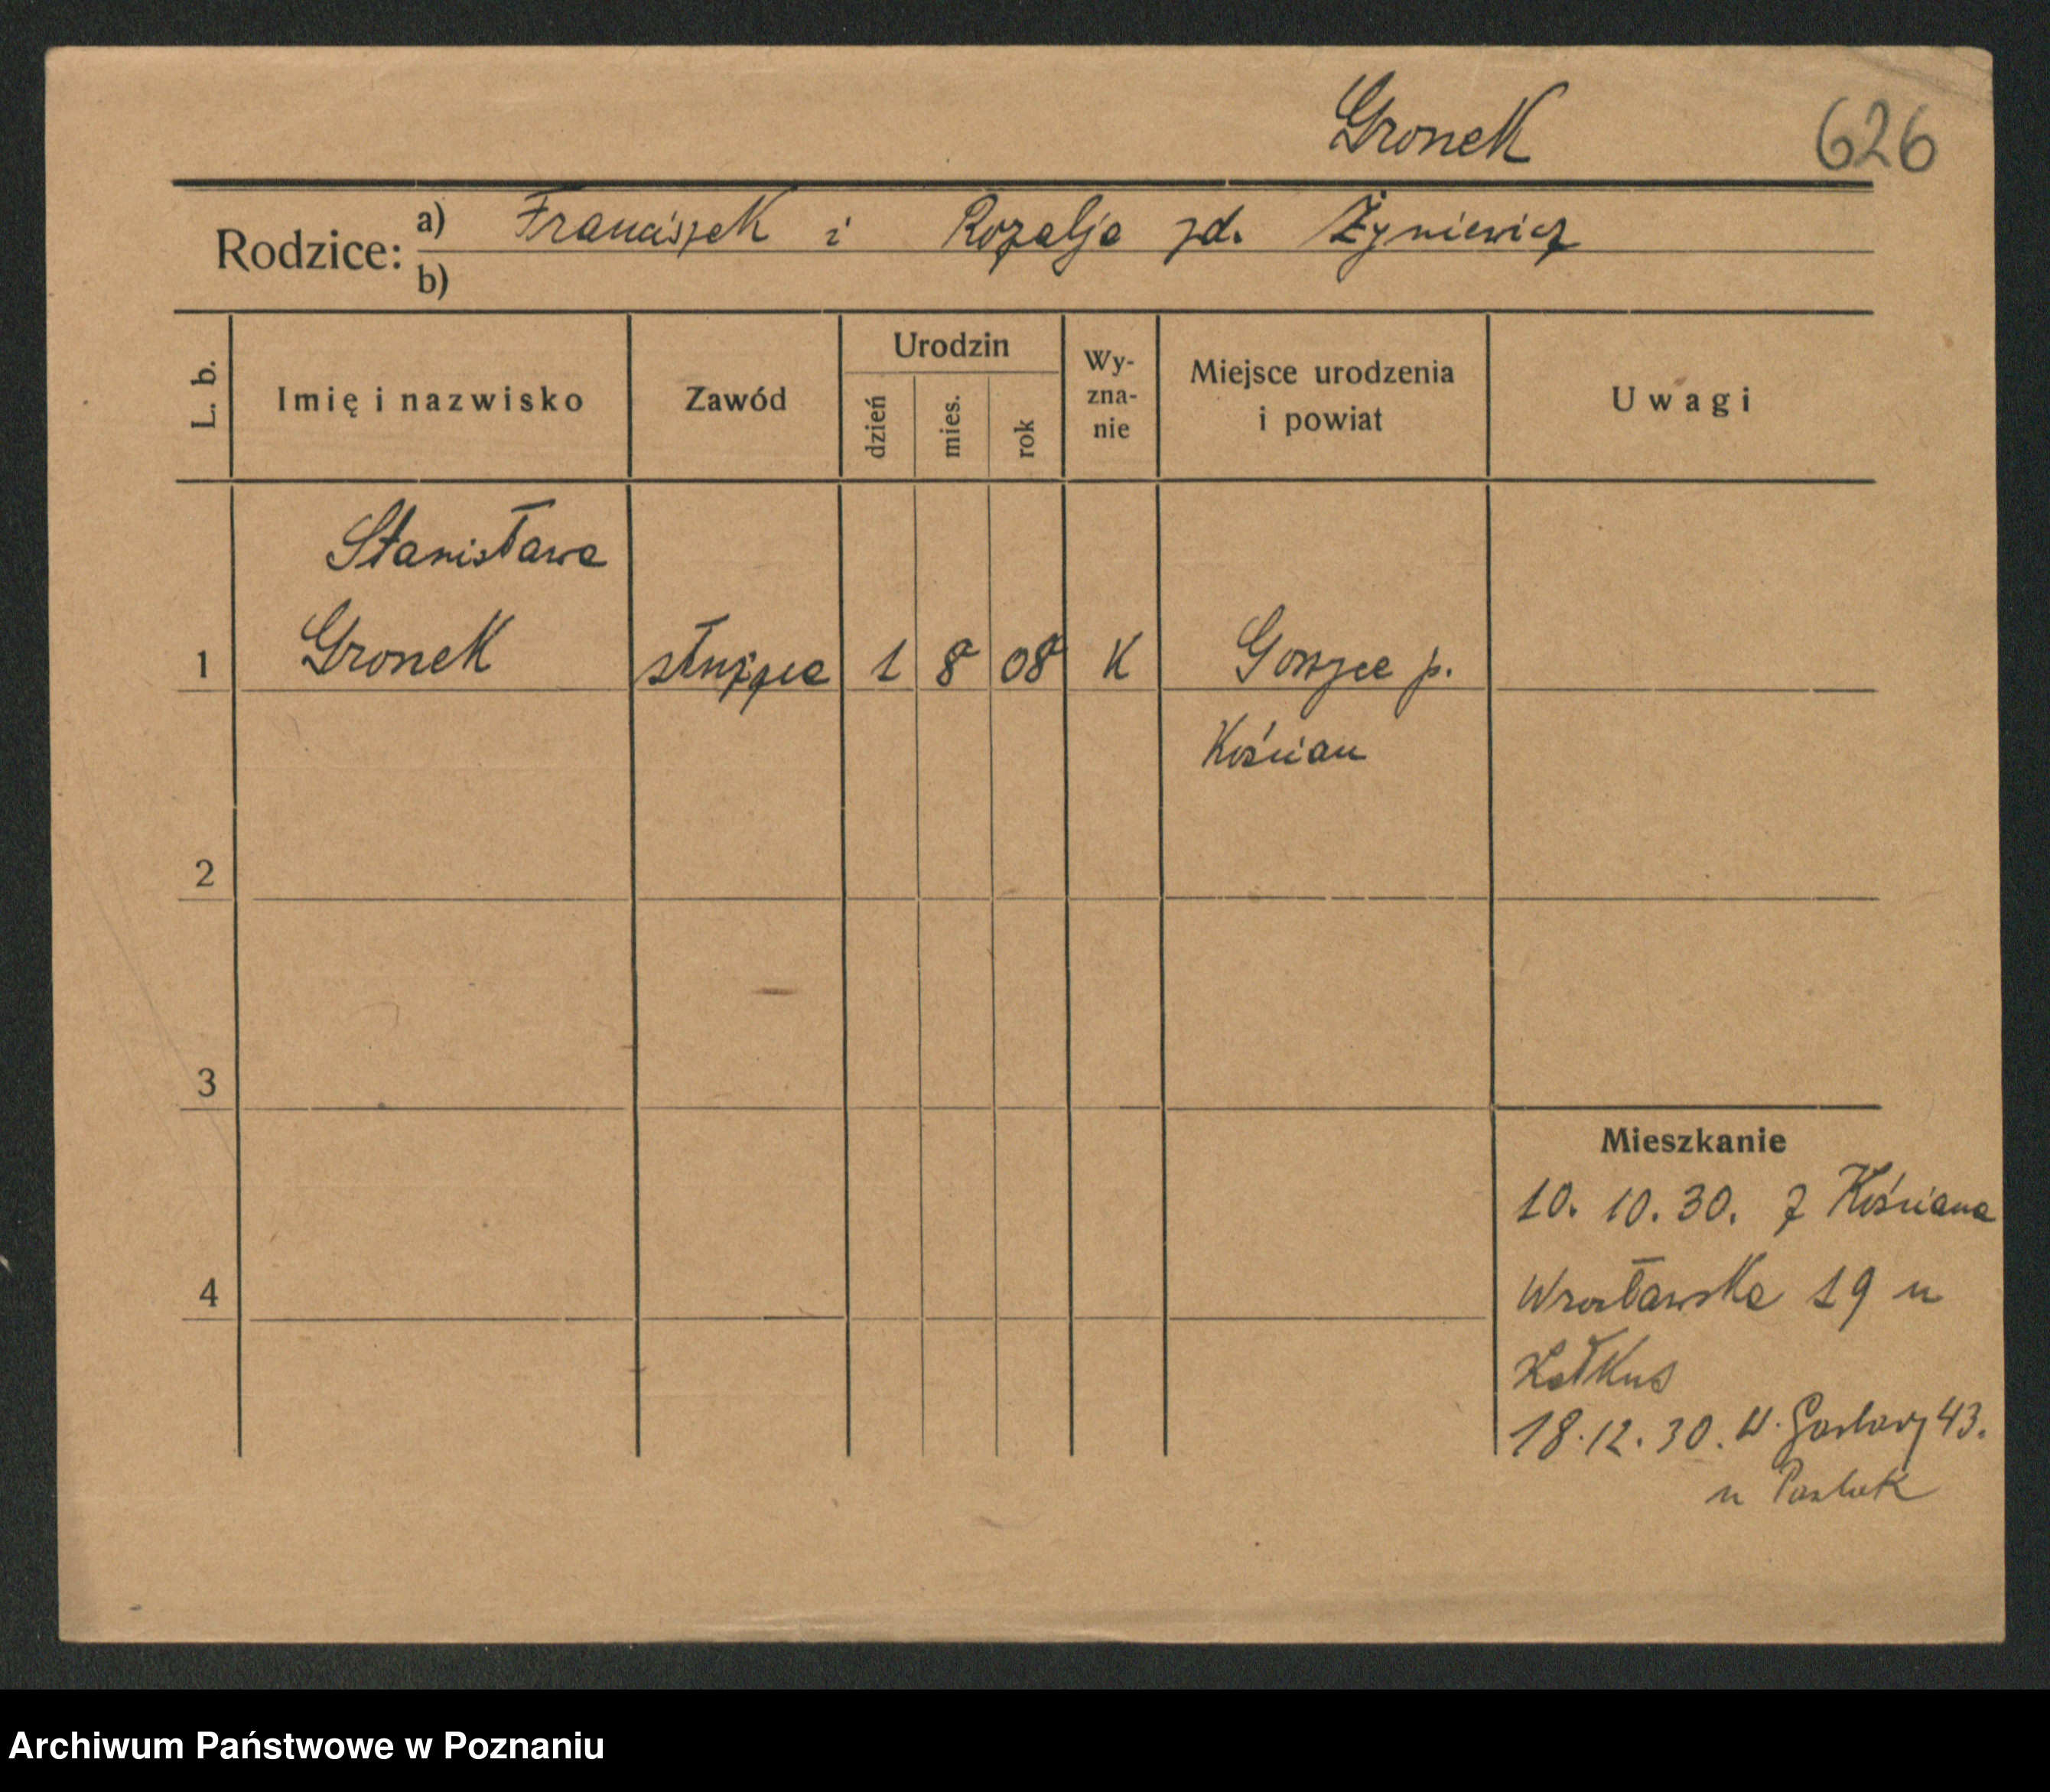 Gronek
626
Rodzice: a) Franciszek i Rozalja zd. Żyniewicz
b)
L. b. Imię i nazwisko Zawód Urodzin dzień mies. rok Wy-zna-nie Miejsce urodzenia i powiat Uwagi
Stanisława
1 Gronek służąca 1 8 08 K p.
Kościan
2
3
Mieszkanie
10. 10. 30. z Kościana
4 Wrocławska 19 u
18.12.30. 43.
u
Archiwum Państwowe w Poznaniu